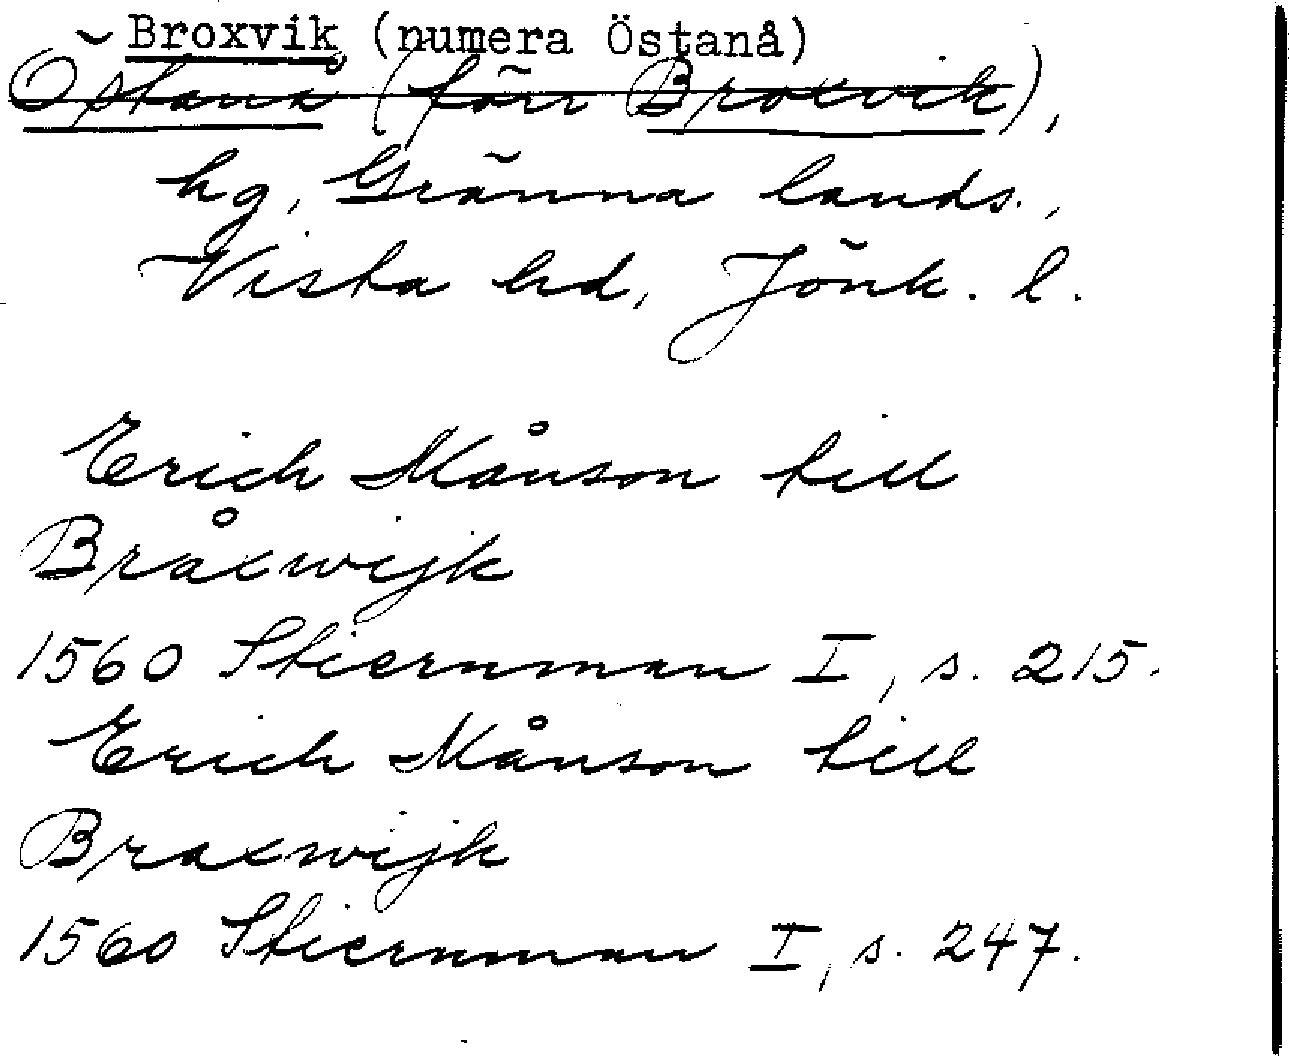 Broxvik (numera Östanå)
Östanå (förr Broxvik),
hg, Gränna lands.,
Vista hd, Jönk. l.
Erich Månson till
Bråxwijk
1560 Stiernman I, s. 215.
Erich Månson till
Braxwijk
1560 Stiernman I, s. 247.